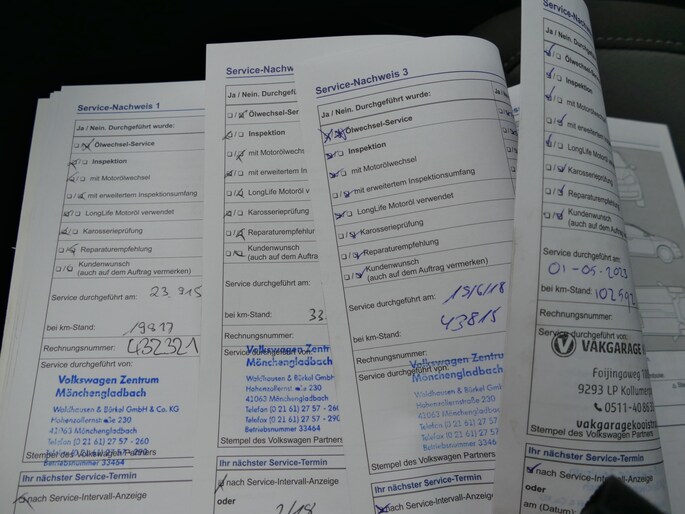 Service-Nachweis 1
Ja / Nein. Durchgeführt wurde:
Ölwechsel-Service
Inspektion
mit Motorölwechsel
mit erweitertem Inspektionsumfang
LongLife Motoröl verwendet
Karosserieprüfung
Reparaturempfehlung
Kundenwunsch
(auch auf dem Auftrag vermerken)
Service durchgeführt am:
23.915
bei km-Stand: 19817
Rechnungsnummer: 432321
Service durchgeführt von:
Volkswagen Zentrum
Mönchengladbach
Waldhausen & Bürkel GmbH & Co. KG
Hohenzollernstraße 230
41063 Mönchengladbach
Telefon (0 21 61) 27 57 - 260
Telefax (0 21 61) 27 57 - 290
Betriebsnummer 33464
Stempel des Volkswagen Partners
Ihr nächster Service-Termin
nach Service-Intervall-Anzeige
Service-Nachweis
Ja / Nein. Durchgeführt
Ölwechsel-Ser
Inspektion
mit Motorölwechs
mit erweitertem In
LongLife Motoröl v
Karosserieprüfung
Reparaturempfe
Kundenwunsch
(auch auf dem Auftra
Service durchgeführt am:
33.
bei km-Stand:
Rechnungsnummer:
Service durchgeführt von:
Volkswagen Zentr
Mönchengladbach
Waldhausen & Bürkel GmbH
Hohenzollernstraße 230
41063 Mönchengladbach
Telefon (0 21 61) 27 57 - 26
Telefax (0 21 61) 27 57 - 29
Betriebsnummer 33464
Stempel des Volkswagen Partners
Ihr nächster Service-Termin
nach Service-Intervall-Anzeige
oder
Service-Nachweis 3
Ja / Nein. Durchgeführt wurde:
Ölwechsel-Service
Inspektion
mit Motorölwechsel
mit erweitertem Inspektionsumfang
LongLife Motoröl verwendet
Karosserieprüfung
Reparaturempfehlung
Kundenwunsch
(auch auf dem Auftrag vermerken)
Service durchgeführt am: 19/6/18
bei km-Stand: 43815
Rechnungsnummer:
Service durchgeführt von:
Volkswagen Zentru
Mönchengladbach
Waldhausen & Bürkel GmbH
Hohenzollernstraße 230
41063 Mönchengladbach
Telefon (0 21 61) 27 57
Telefax (0 21 61) 27 57
Betriebsnummer 33464
Stempel des Volkswagen Partners
Ihr nächster Service-Termin
nach Service-Intervall-Anzeige
Service-Nachweis
Ja / Nein. Durch
Ölwechsel
Inspektion
mit Motorö
mit erweiter
LongLife Moto
Karosserieprüf
Reparaturempf
Kundenwunsch
(auch auf dem Auft
Service durchgeführt am:
01-05-2023
bei km-Stand:
Service durchgeführt von:
VAKGARAGE
Foijingaweg
9293 LP Kollumer
0511-40 86
vakgaragekooistra
Stempel des Volkswagen Partne
Ihr nächster Service-Termin
nach Service-Intervall-Anzeig
oder
am (Datum):